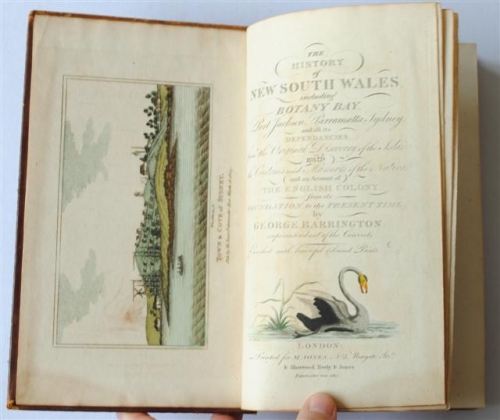 THE
HISTORY
of
NEW SOUTH WALES,
including
BOTANY BAY,
Port Jackson, Parramatta, Sydney,
and all its
DEPENDANCIES,
from the Original Discovery of the Isle:
with
the Customs and Manners of the Natives,
and an Account of
THE ENGLISH COLONY
from its
FOUNDATION to the PRESENT TIME,
by
GEORGE BARRINGTON
superintendant of the Convicts.
with Coloured Prints
LONDON:
Printed for M. JONES, Newgate
& Sherwood Neely & Jones
TOWN & COVE of SYDNEY,